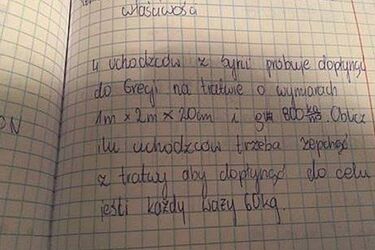 właściwości
4 uchodźców z Syrii próbuje dopłynąć
do Grecji na tratwie o wymiarach
1m × 2m × 20cm i g= 800 kg/m³. Oblicz
ilu uchodzców trzeba zepchnąć
z tratwy aby dopłynąć do celu
jeśli każdy waży 60kg.